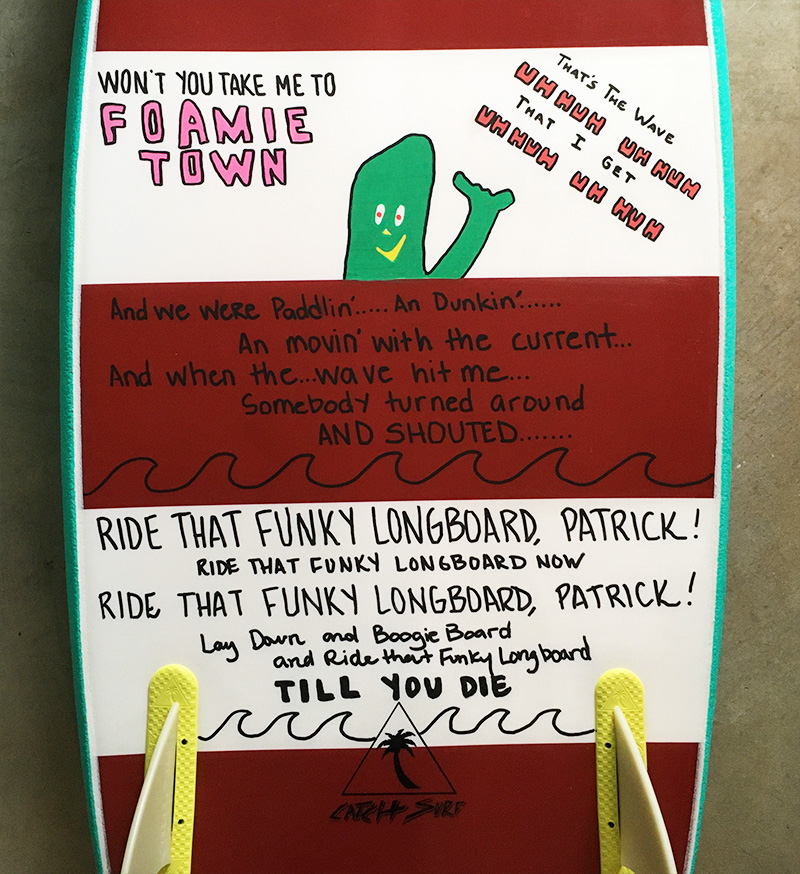 WON'T YOU TAKE ME TO
FOAMIE
TOWN
THAT'S THE WAVE
UH HUH UH HUH
THAT I GET
UH HUH UH HUH
And we were Paddlin'..... An Dunkin'......
An movin' with the current...
And when the...wave hit me...
Somebody turned around
AND SHOUTED.......
RIDE THAT FUNKY LONGBOARD, PATRICK!
RIDE THAT FUNKY LONGBOARD NOW
RIDE THAT FUNKY LONGBOARD, PATRICK!
Lay Down and Boogie Board
and Ride that Funky Longboard
TILL YOU DIE
CATCH SURF